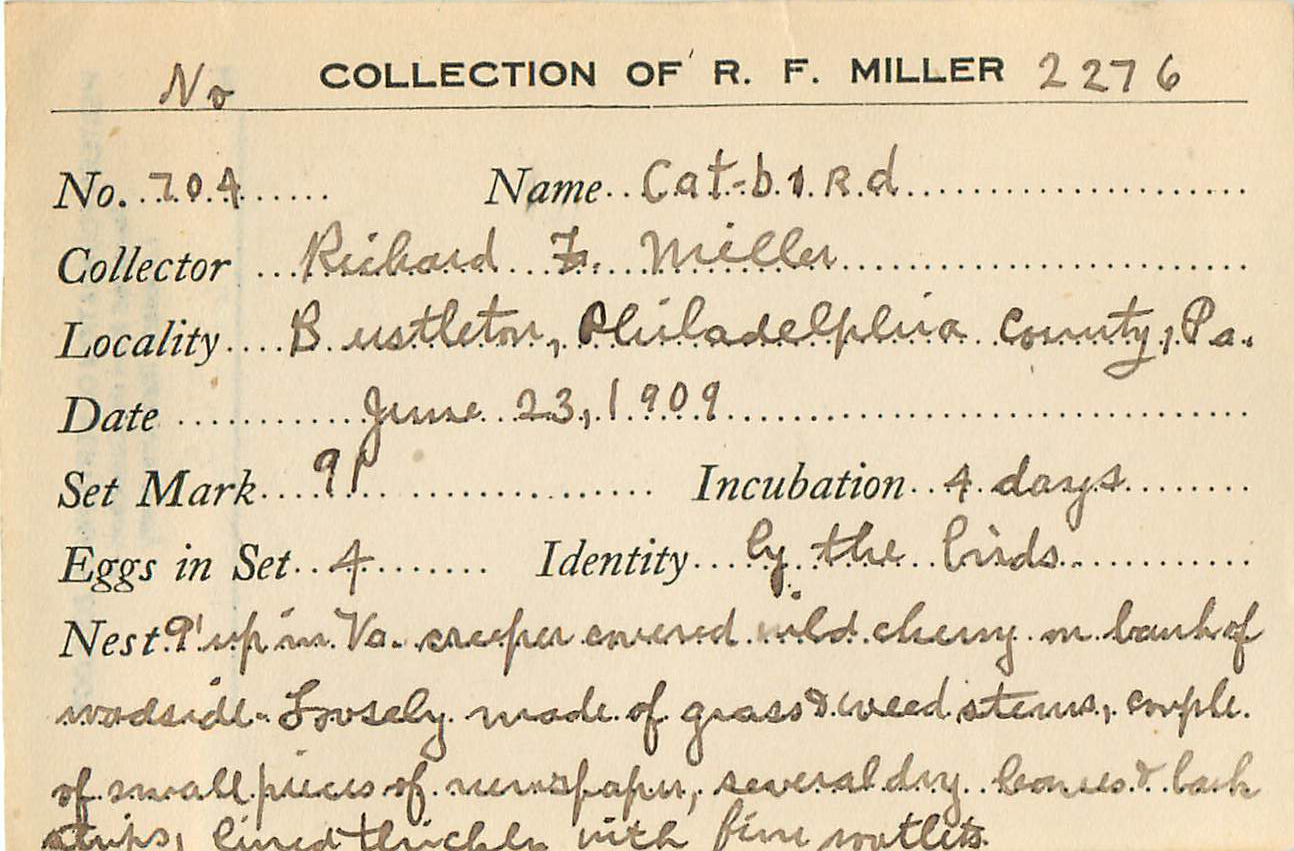 No COLLECTION OF R. F. MILLER 2276
No. 704 Name Cat-biRd
Collector Richard F. Miller
Locality Bustleton, Philadelphia County, Pa.
Date June 23, 1909
Set Mark 91 Incubation 4 days
Eggs in Set 4 Identity by the birds
Nest 9' up in Va. creeper covered wild cherry on bank of
roadside. Loosely made of grass & weed stems, couple
of small pieces of newspaper, several dry leaves & bark
strips, lined thickly with fine rootlets.